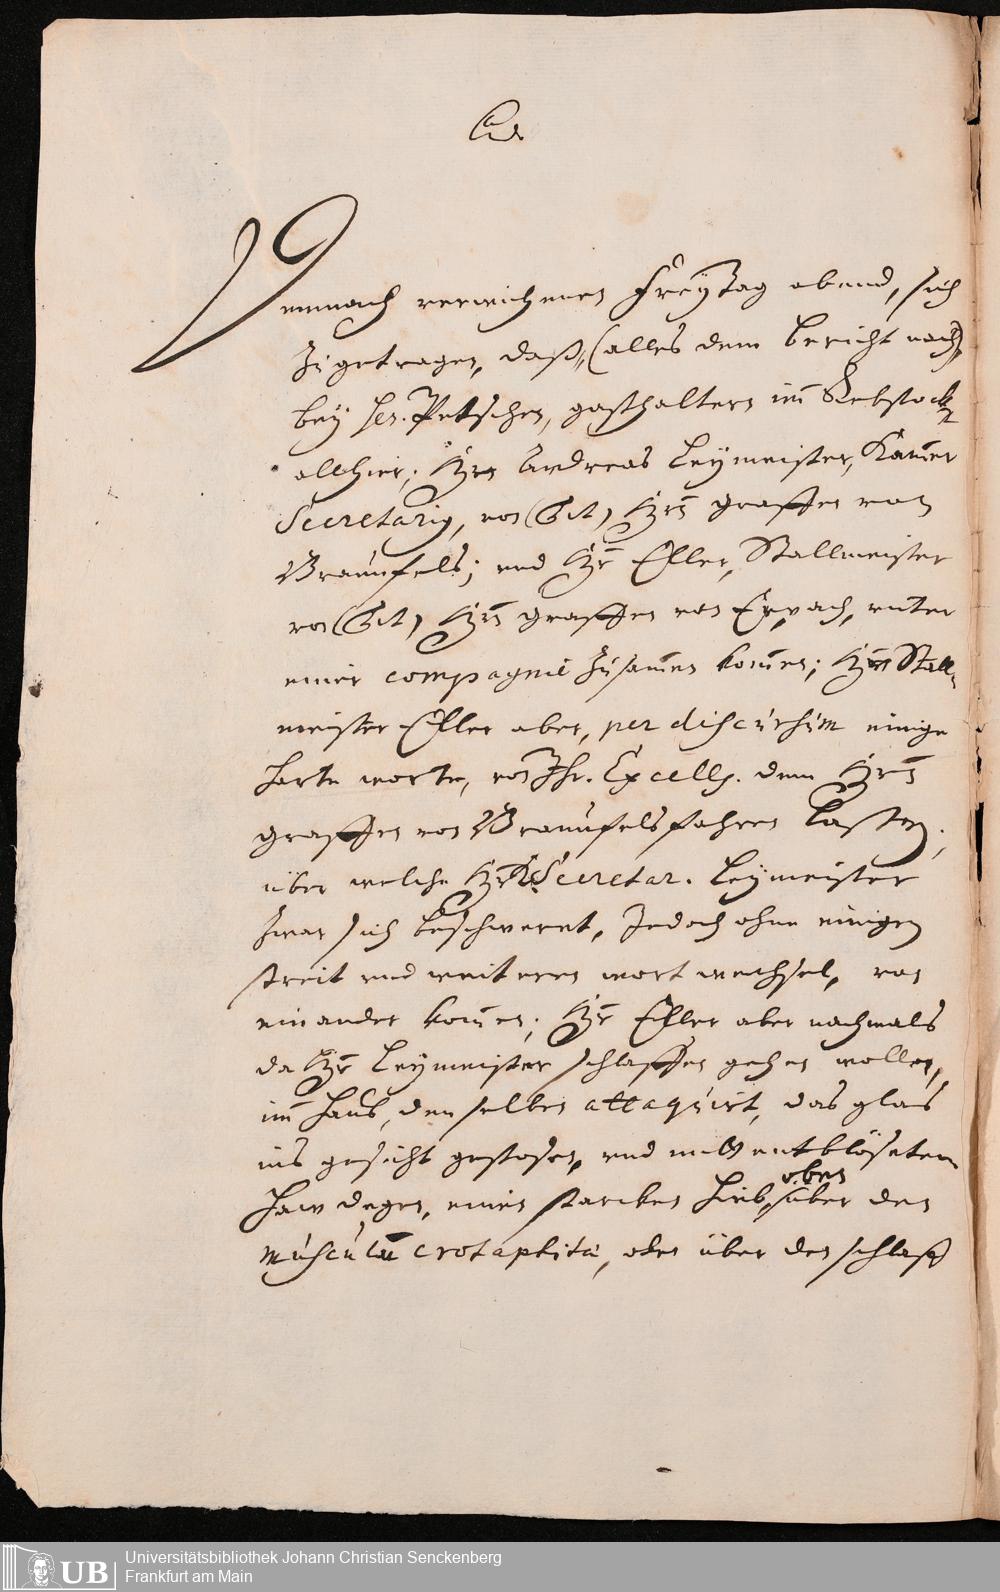 Demnach verwichenen Freÿtag abend, sich
Zugetragen, daß, (alles dem bericht nach)
beÿ Hr. Petschen, gasthaltern im̄ Rebstock
allhier; Hrn Andreas Leÿmeister, Kam̄er
Secretario, von (Tit) Hrn̄ graffen von
Braunfels; und Hr̄ Eller, Stallmeister
von (Tit) Hrn̄ graffen von Erpach, unter
einer compagnie Zusam̄en kom̄en; Hrn̄ Stall-
meister Eller aber, per discursum einige
harte worte, von Ihr. Excell. dem Hrn̄
graffen von Braunfels fahren laßen,
über welche Hr Secretar. Leÿmeister
Zwar sich beschweret, Jedoch ohne einigen
streit und weiteren wort wechsel, von
einander kom̄en; Hr̄ Eller aber nachmals
da Hr̄ Leÿmeister schlaffen gehen wollen,
im̄ Hauß, denselben attaquirt, das glas
ins gesicht gestosen, und mitt entblösetem
Haw degen, einen starcken Hieb, oben über den
musculū crotaphitū, oder über den schlaff